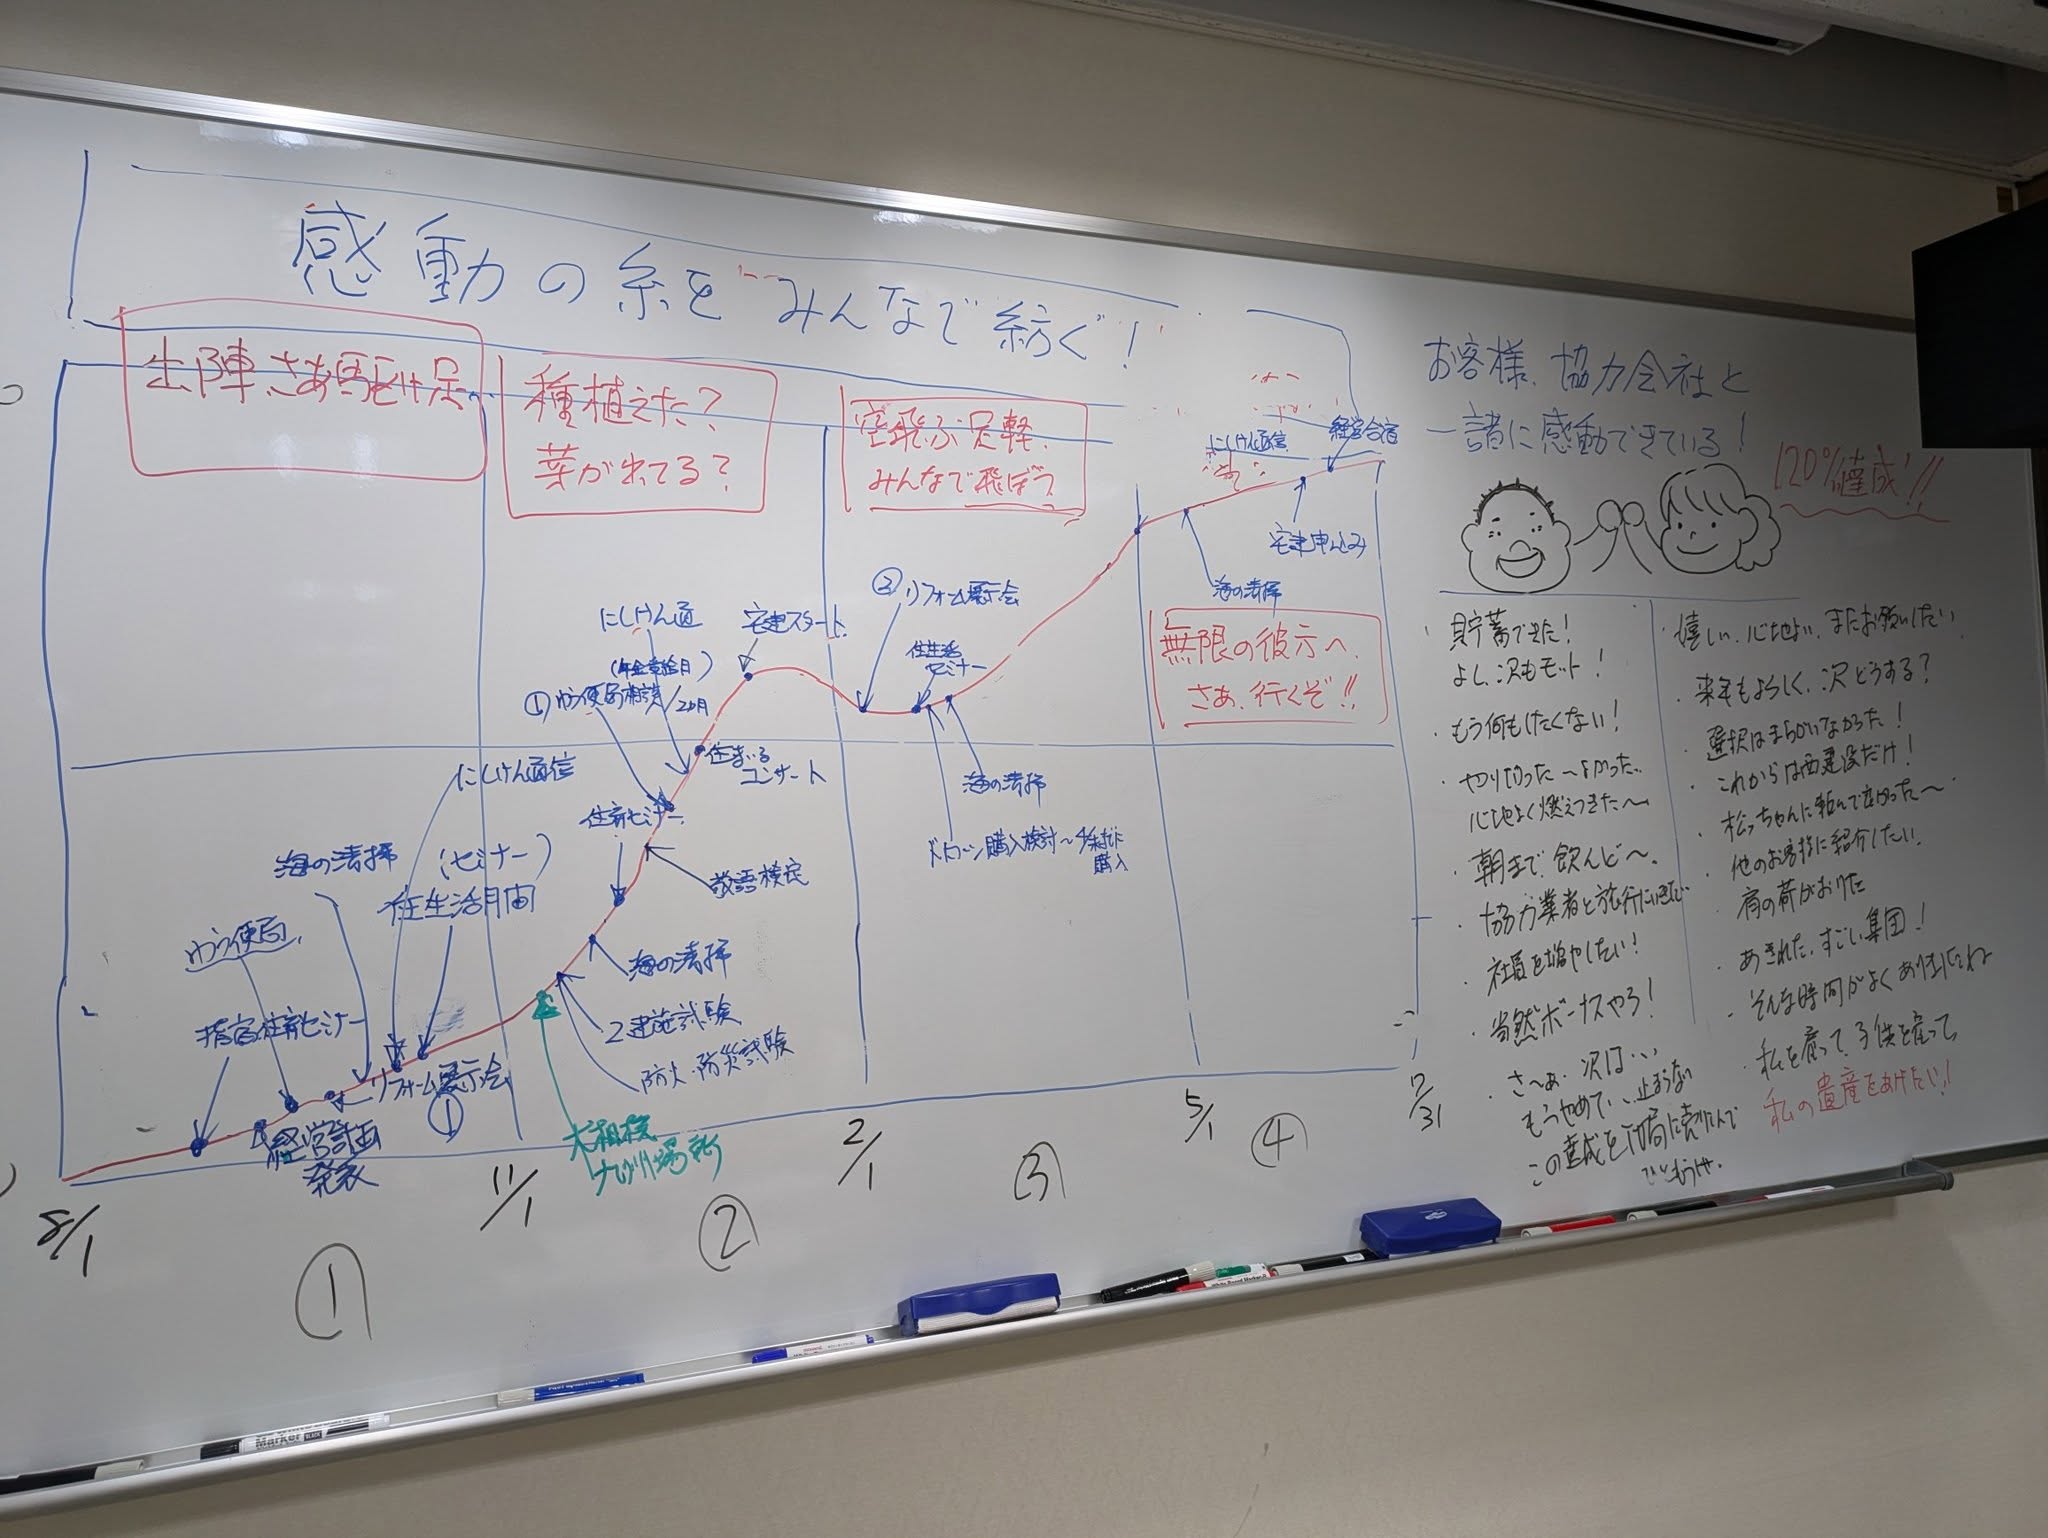 感動の糸をみんなで紡ぐ!
出陣、さあ駆け足
種植えた?
芽が出てる?
空飛ぶ足軽、
みんなで飛ぼう
無限の彼方へ、
さあ、行くぞ!!
指宿住新セミナー
ゆう便局
経営計画
発表
リフォーム展示会
①
海の清掃
にしけん通信
(セミナー)
住生活月間
大相撲
九州場所
防火・防災試験
2建施試験
海の清掃
住新セミナー
敬語検定
①ゆう便局相談/2ヶ月
(年金支給日)
にしけん通
住まいる
コンサート
宅建スタート
②リフォーム展示会
住生活
セミナー
ドローン購入検討~
購入
海の清掃
海の清掃
宅建申し込み
にしけん通信
経営合宿
8/1
①
11/1
②
2/1
③
5/1
④
7/31
お客様、協力会社と
一諸に感動できている!
120%達成!!
・貯蓄できた!
よし、次もモット!
・もう何もしたくない!
・やり切った~よかった、
心地よく燃えつきた~
・朝まで飲んど~、
・協力業者と旅行に
社員を増やしたい!
・当然ボーナスやろ!
・さ~あ、次は…
もうやめて…止まらない
この達成を
・嬉しい、心地よい、またお願いしたい
・来年もよろしく、次どうする?
・選択はまちがいなかった!
これからは西建設だけ!
・松っちゃんに頼んで良かった~
他のお客様に紹介したい
・肩の荷がおりた
・あきれた、すごい集団!
・そんな時間がよくありましたね
・私を雇って、子供を雇って
私の遺産をあげたい!